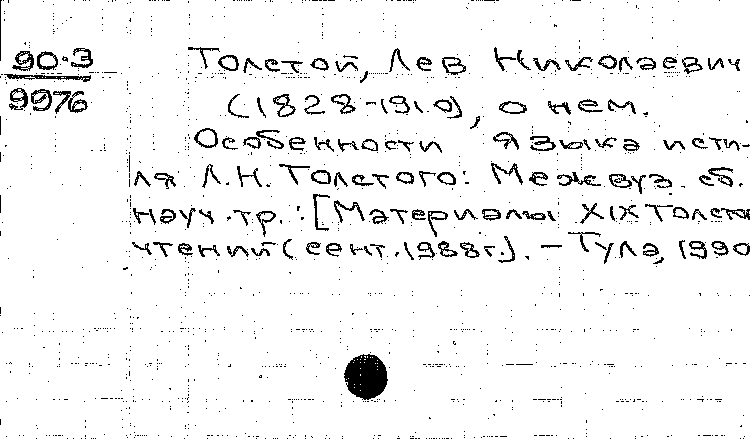 90-3
9976
Толстой, Лев Николаевич
(1828-1910), о нем.
Особенности языка и сти-
ля Л.Н. Толстого: Межвуз. сб.
науч. тр.: [Материалы XIX Толсто
чтений (сент. 1988г.)]. - Тула, 1990